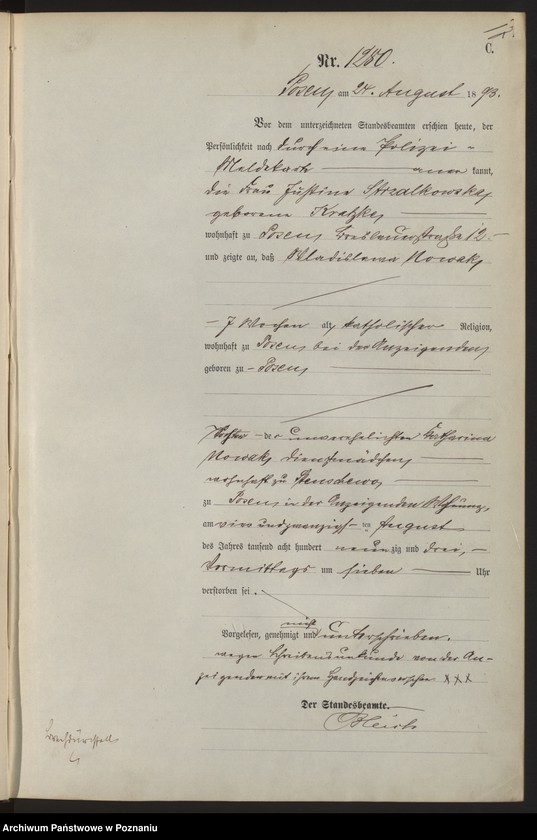 C.
Nr. 1280.
Posen am 24. August 1893.
Vor dem unterzeichneten Standesbeamten erschien heute, der
Persönlichkeit nach durch eine Polizei-
Meldekarte anerkannt,
die Frau Justine Strzalkowska
geborene Kratzka
wohnhaft zu Posen, Breslauerstraße 12.
und zeigte an, daß Wladislawa Nowak,
7 Wochen alt, katholischer Religion,
wohnhaft zu Posen bei der Anzeigenden
geboren zu Posen,
Tochter der unverehelichten Katharina
Nowak, Dienstmädchen,
wohnhaft zu
zu Posen, in der Anzeigenden Wohnung,
am vier und zwanzigsten August
des Jahres tausend acht hundert neunzig und drei,
Vormittags um sieben Uhr
verstorben sei.
nicht
Vorgelesen, genehmigt und unterschrieben.
wegen Schreibensunkunde von der An-
zeigenden mit ihrem Handzeichen versehen XXX
Der Standesbeamte.
Archiwum Państwowe w Poznaniu